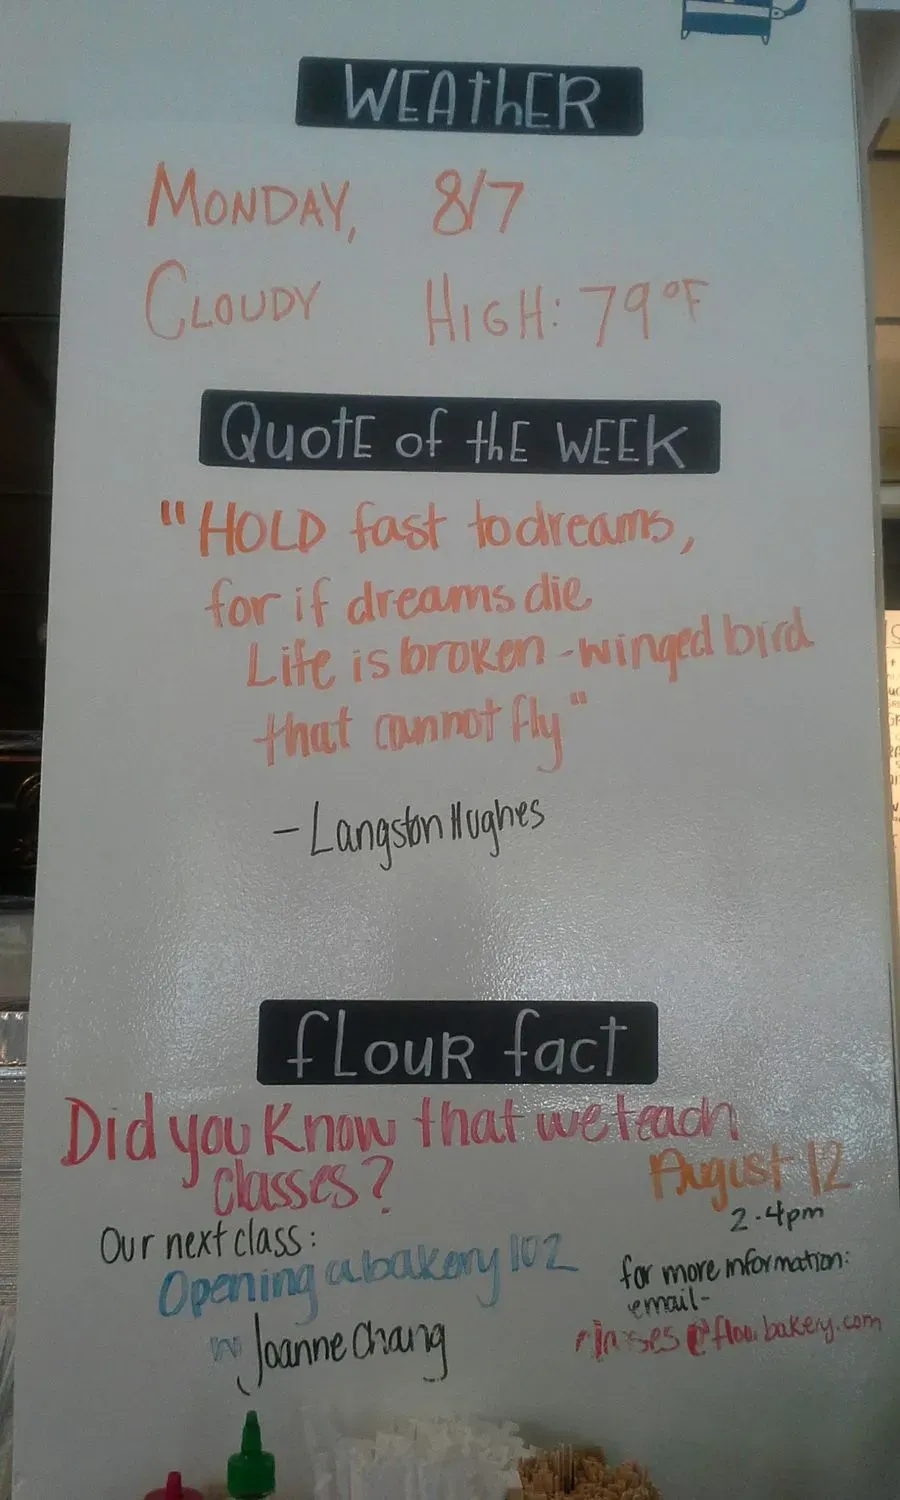 WEAthER
MONDAY, 8/7
CLOUDY HIGH: 79°F
QuotE of thE WEEK
"HOLD fast to dreams,
for if dreams die
Life is broken-winged bird
that cannot fly"
-Langston Hughes
fLOUR fact
Did you Know that we teach
classes?
August 12
2-4pm
Our next class:
Opening a bakery 102
w/ Joanne Chang
for more information:
email-